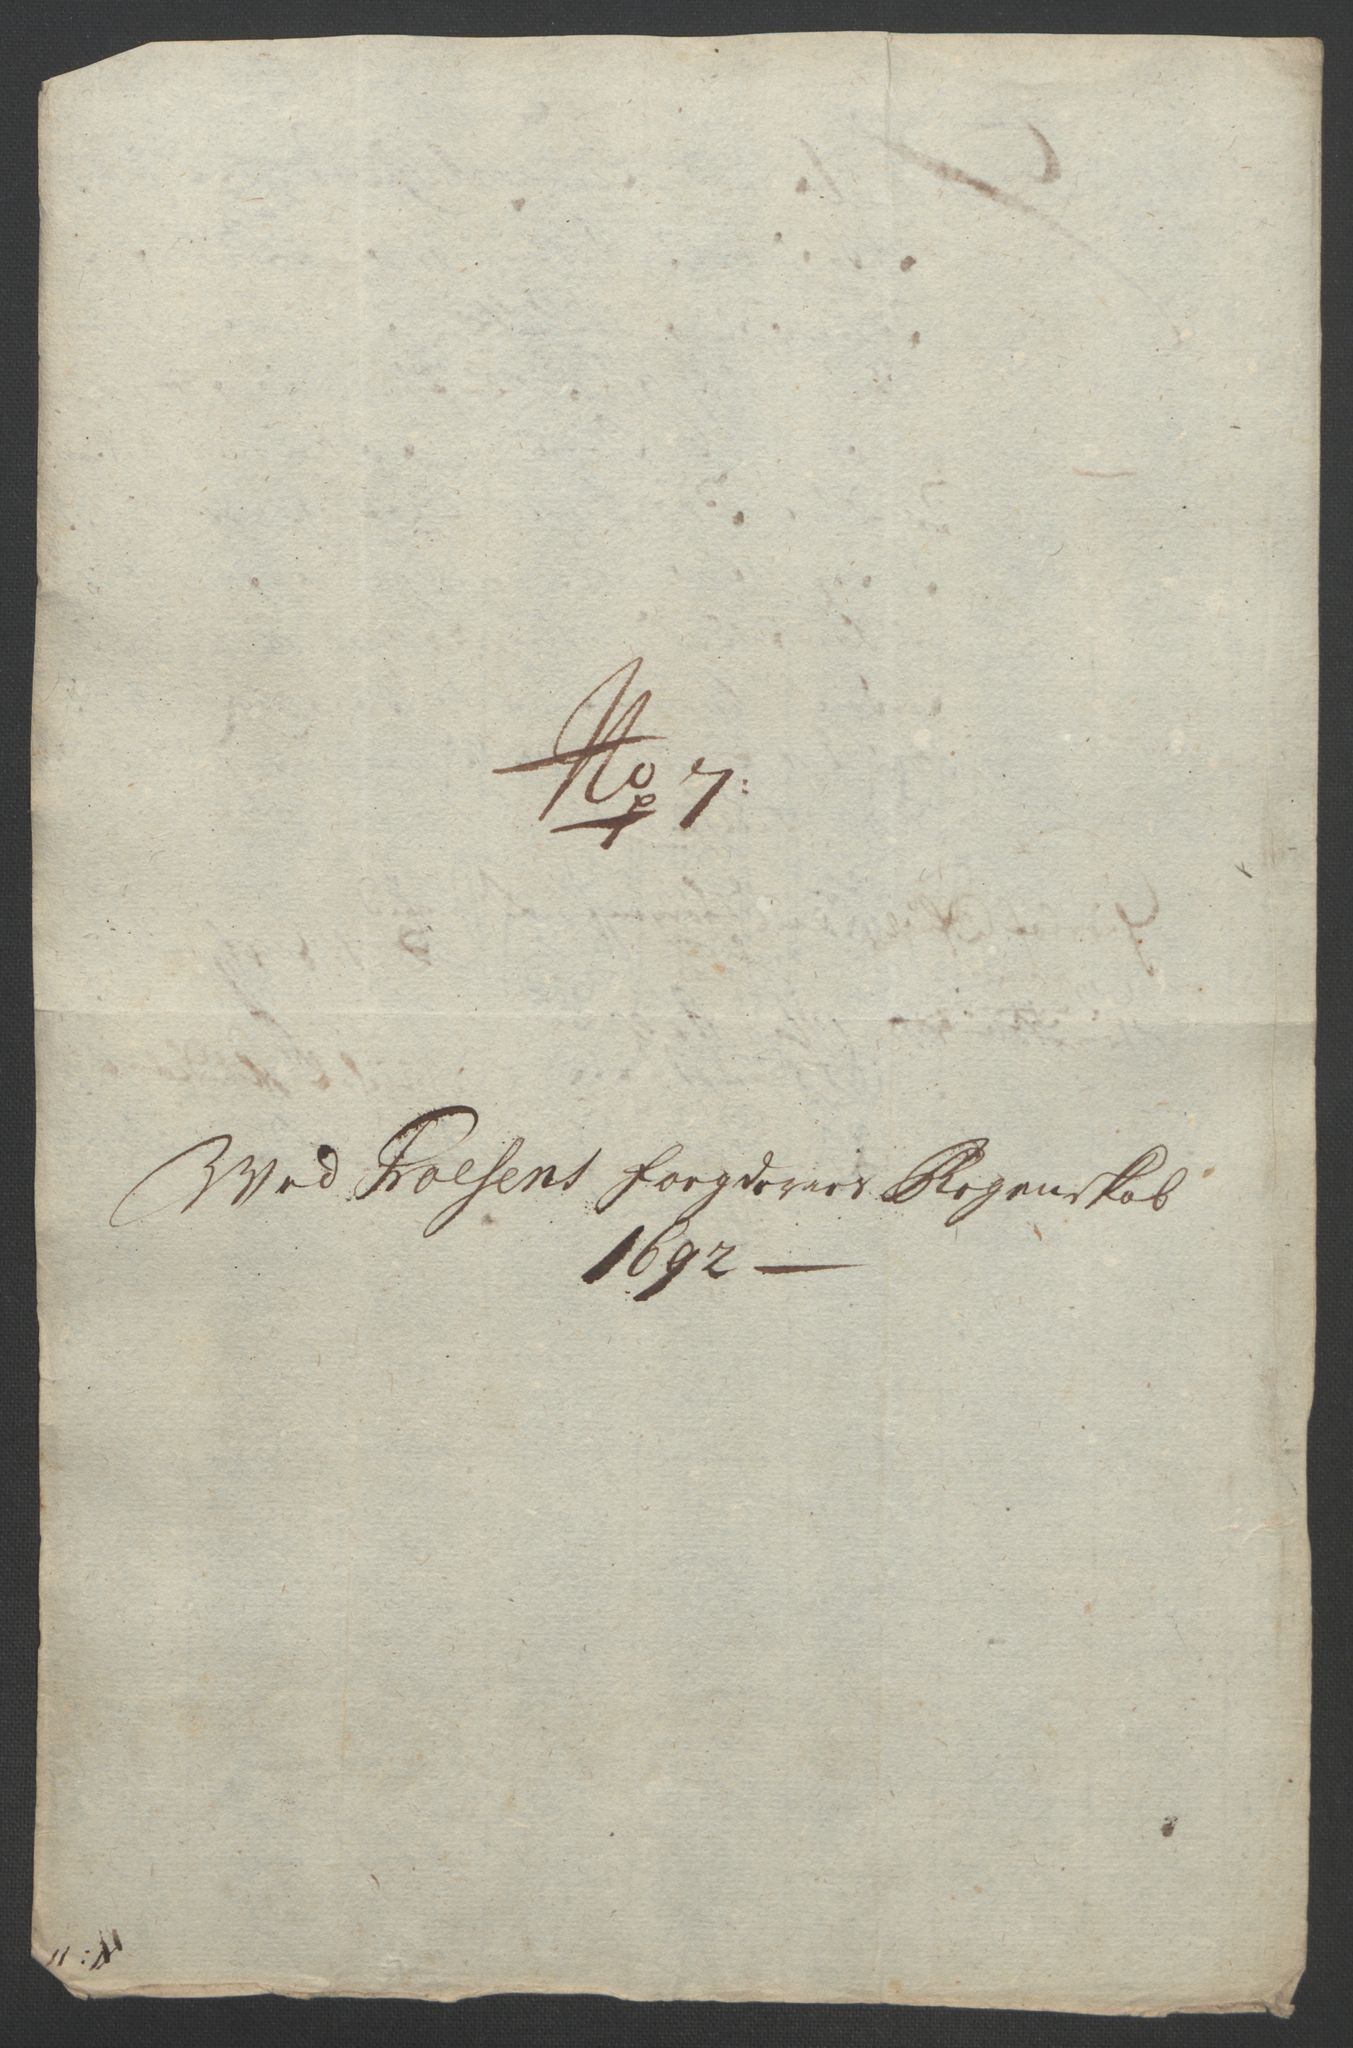 No 7:
Wed Troesens fougderies Regenskab
1692 —